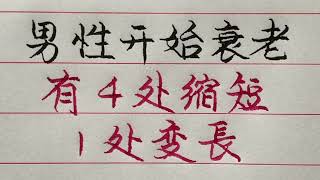 男性开始衰老
有4处缩短
1处变長